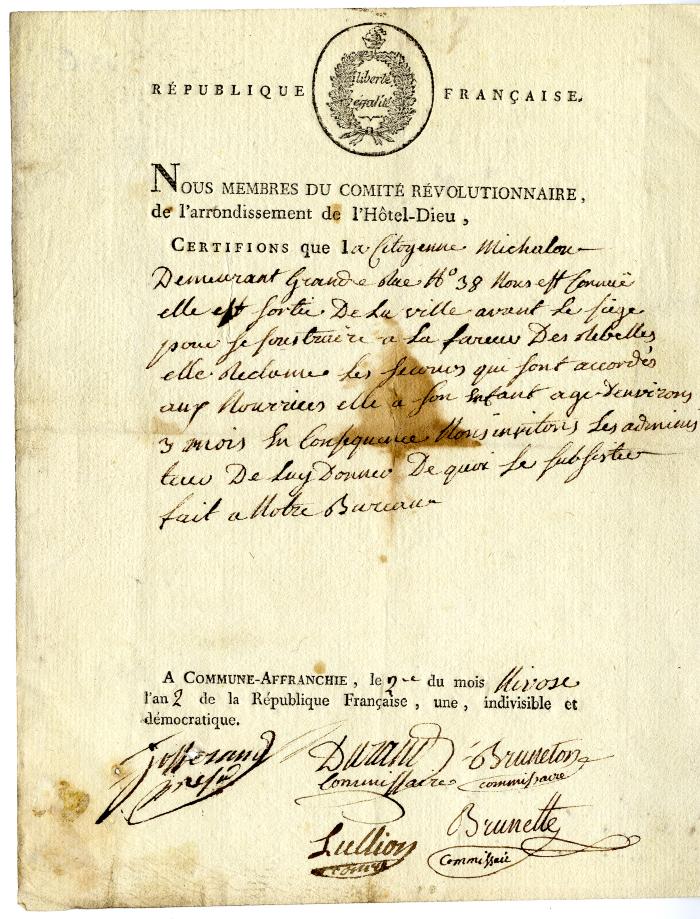 RÉPUBLIQUE liberté égalité FRANÇAISE.
NOUS MEMBRES DU COMITÉ RÉVOLUTIONNAIRE,
de l'arrondissement de l'Hôtel-Dieu,
CERTIFIONS que la Citoyenne Michalon
Demeurant Grande Rue N° 38 Nous est Connuë
elle est sortie De La ville avant Le siége
pour se soustraire a La fureur Des Rebelles
elle Reclame Les secours qui sont accordés
aux Nourrices elle a son Enfant age Denvirons
3 mois En Consequence Nous invitons Les adminis
teur De Luy Donner De quoi Se subsister
fait a Notre Bureau
A COMMUNE-AFFRANCHIE, le 2 du mois Nivose
l'an 2 de la République Française, une, indivisible et
démocratique.
Durand Bruneton
Commissaire commissaire
Lullion Brunette
Commissaire